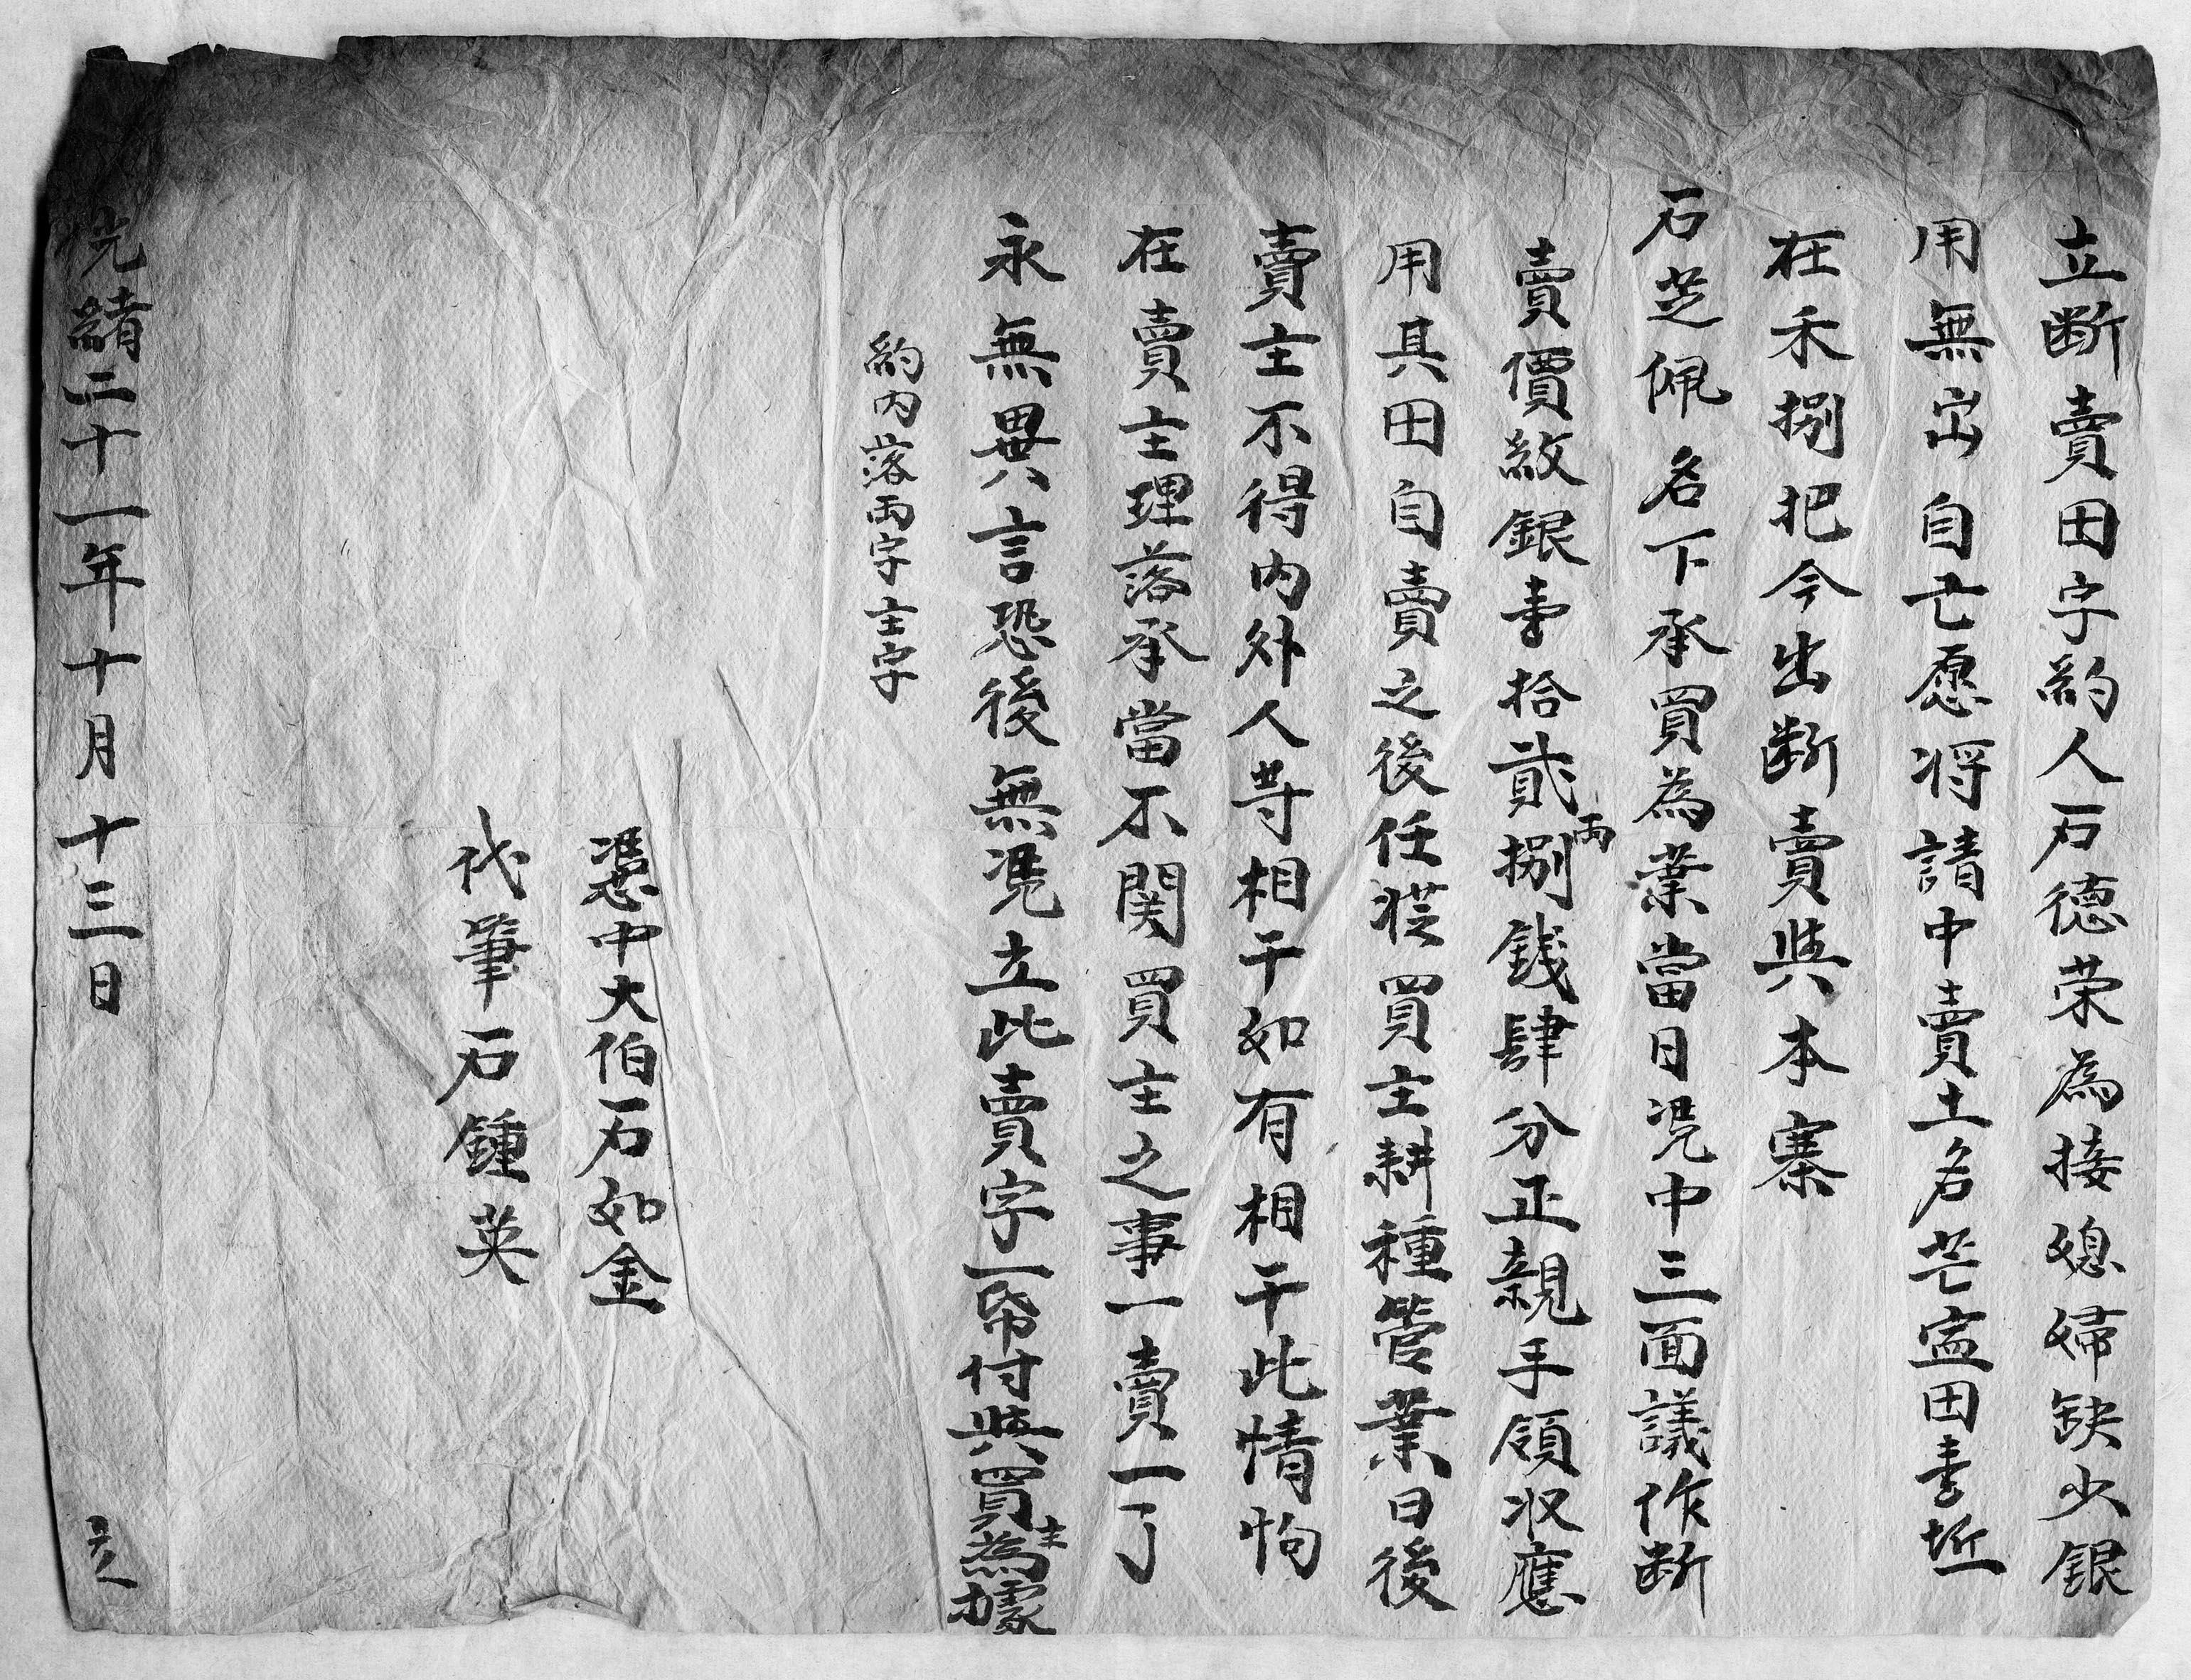 立断賣田字約人石德荣為接媳婦缺少銀
用無出自己愿将請中賣土名芒盍田壹坵
在禾捌把今出断賣與本寨
石芝佩名下承買為業當日凴中三面議作断
賣價紋銀壹拾貳兩捌錢肆分正親手領収應
用其田自賣之後任從買主耕種管業日後
賣主不得内外人等相干如有相干此情怐
在賣主理落承當不関買主之事一賣一了
永無異言恐後無凴立此賣字一帋付與買主為據
約内落兩字主字
憑中大伯石如金
代筆石鍾英
光緒二十一年十月十三日 立